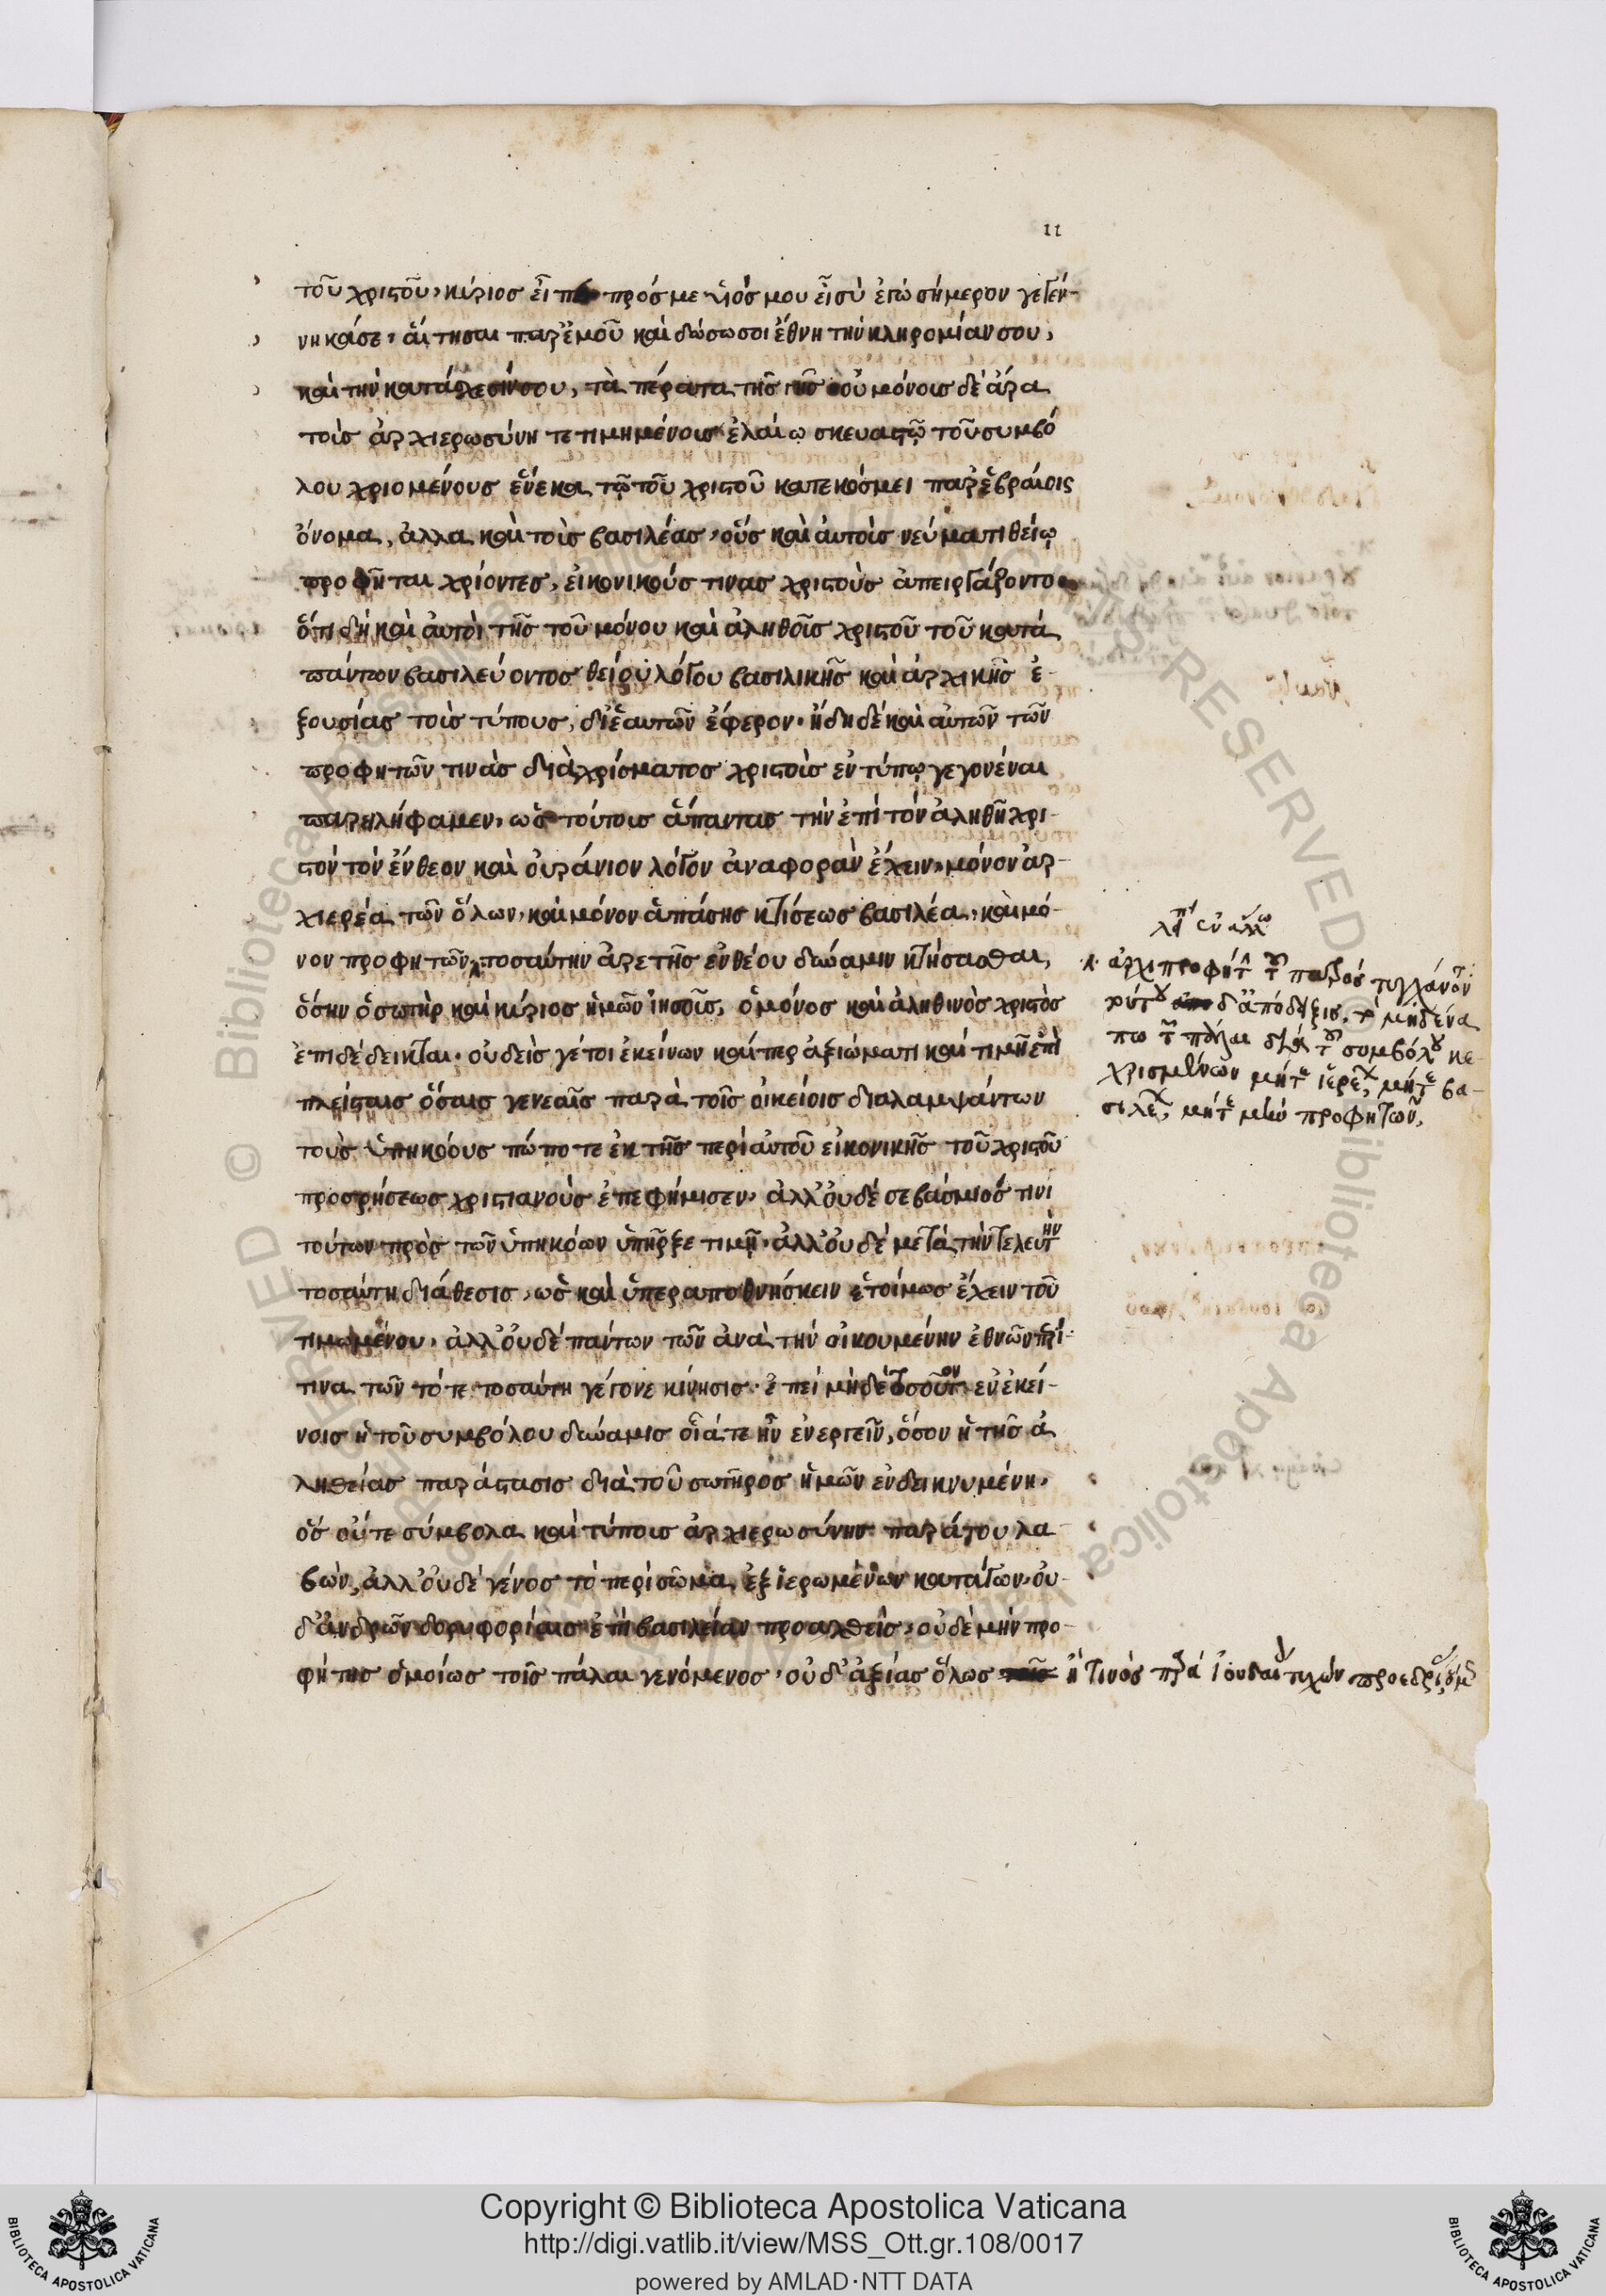 11
τοῦ χριστοῦ, κύριος εἶπε πρός με υἱός μου εἶ σύ ἐγώ σήμερον γεγέν-
νηκάσε, αἴτησαι παρ' ἐμοῦ καὶ δώσω σοι ἔθνη τὴν κληρομίαν σου,
καὶ τὴν κατάσχεσίν σου, τὰ πέρατα τῆς γῆς οὐ μόνοις δὲ ἄρα
τοὺς ἀρχιερωσύνη τετιμημένους ἐλαίῳ σκευαστῷ τοῦ συμβό
λου χριομένους ἕνεκα τῷ τοῦ χριστοῦ κατεκόσμει παρ' ἑβραίοις
ὄνομα, ἀλλα καὶ τοὺς βασιλέας, οὓς καὶ αὐτοὺς νεύματι θείῳ
προφῆται χρίοντες, εἰκονικούς τινας χριστοὺς ἀπειργάζοντο
ὅτι δὴ καὶ αὐτοὶ τῆς τοῦ μόνου καὶ ἀληθοῦς χριστοῦ τοῦ κατά
πάντον βασιλεύοντος θείου λόγου βασιλικῆς καὶ ἀρχικῆς ἐ-
ξουσίας τοὺς τύπους, δι' ἑαυτῶν ἔφερον. ἤδη δὲ καὶ αὐτῶν τῶν
προφητῶν τινὰς διὰ χρίσματος χριστοὺς ἐν τύπῳ γεγονέναι
παρηλήφαμεν, ὡς τούτοις ἅπαντας τὴν ἐπὶ τὸν ἀληθῆ χρι-
στὸν τὸν ἔνθεον καὶ οὐράνιον λόγον ἀναφορὰν ἔχειν, μόνον ἀρ-
χιερέα τῶν ὅλων, καὶ μόνον ἁπάσης κτίσεως βασιλέα, καὶ μό-
νον προφητῶν τοσαύτην ἀρετῆς ἐνθέου δύναμιν κτήσασθαι,
ὅσην ὁ σωτὴρ καὶ κύριος ἡμῶν ἰησοῦς, ὁ μόνος καὶ ἀληθινὸς χριστὸς
ἐπιδέδεικται. οὐδεὶς γέτοι ἐκείνων καίπερ ἀξιώματι καὶ τιμῆ ἐπὶ
πλείσταις ὅσαις γενεαῖς παρὰ τοῖς οἰκείοις διαλαμψάντων
τοὺς ὑπηκόους πώποτε ἐκ τῆς περὶ αὐτοῦ εἰκονικῆς τοῦ χριστοῦ
προσρήσεως χριστιανοὺς ἐπεφήμισεν, ἀλλ' οὐδὲ σεβάσμιός τινι
τούτων πρὸς τῶν ὑπηκόων ὑπῆρξε τιμὴ, ἀλλ' οὐδὲ μετὰ τὴν τελευτὴν
τοσαύτη διάθεσις, ὡς καὶ ὑπεραποθνήσκειν ἑτοίμως ἔχειν τοῦ
τιμωμένου, ἀλλ' οὐδὲ πάντων τῶν ἀνὰ τὴν οἰκουμένην ἐθνῶν περί
τινα τῶν τότε τοσαύτη γέγονε κίνησις. ἐπεὶ μὴδὲ τοσοῦτον ἐν ἐκεί-
νοις ἡ τοῦ συμβόλου δύναμις οἵατε ἦν ἐνεργεῖν, ὅσον ἡ τῆς ἀ
ληθείας παράστασις διὰ τοῦ σωτῆρος ἡμῶν ἐνδεικνυμένη,
ὃς οὔτε σύμβολα καὶ τύποις ἀρχιερωσύνης παράτου λα
βὼν, ἀλλ' οὐδὲ γένος τὸ περὶ σῶμα ἐξ ἱερωμένων κατάγων, οὐ
δ' ἀνδρῶν δορυφορίαις ἐπὶ βασιλείαν προαχθεὶς, οὐδὲ μὴν προ-
φήτης ὁμοίως τοῖς πάλαι γενόμενος, οὐδ' ἀξίας ὅλως ἤ τινος παρὰ ἰουδαίοις τυχὼν προεδρίας
λεί ἐν ἄλλω
ἀρχιπροφήτην τοῦ πατρός τυγχάνοντα
τούτου δ' ἀπόδειξις, τὸ μηδένα
πω τῶν πάλαι διὰ τοῦ συμβόλου κε-
χρισμένων μήτε ἱερέων, μήτε βα-
σιλέων, μήτε μὴν προφητῶν,
Copyright © Biblioteca Apostolica Vaticana
http://digi.vatlib.it/view/MSS_Ott.gr.108/0017
powered by AMLAD·NTT DATA